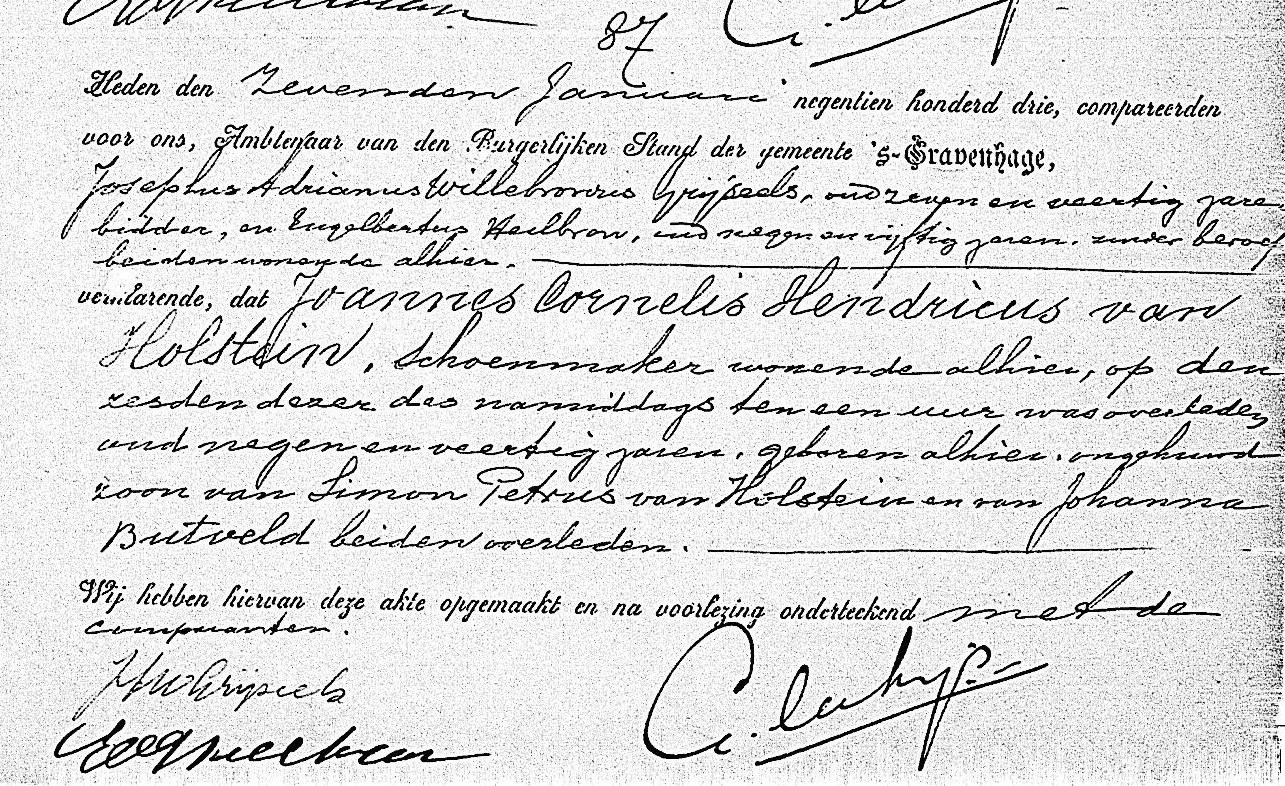 87
Heden den Zevenden Januari negentien honderd drie, compareerden
voor ons, Ambtenaar van den Burgerlijken Stand der gemeente 's-Gravenhage,
Josephus Adrianus Willebrordus Grijseels, oud zeven en veertig jare
bidder, en Engelbertus Heilbron, oud negen en vijftig jaren, zonder beroep
beiden wonende alhier.
verklarende, dat Joannes Cornelis Hendricus van
Holstein, schoenmaker wonende alhier, op den
zesden dezer des namiddags ten een uur was overleden
oud negen en veertig jaren, geboren alhier, ongehuwd
zoon van Simon Petrus van Holstein en van Johanna
Butveld beiden overleden.
Wij hebben hiervan deze akte opgemaakt en na voorlezing onderteekend met de
comparanten.